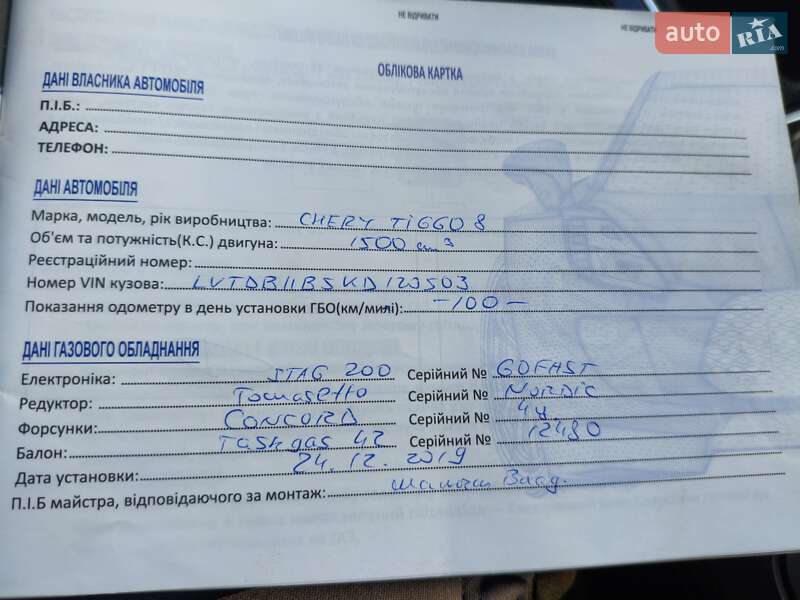 НЕ ВІДРИВАТИ
НЕ ВІДРИВАТИ
auto RIA.com
ОБЛІКОВА КАРТКА
ДАНІ ВЛАСНИКА АВТОМОБІЛЯ
П.І.Б.:
АДРЕСА:
ТЕЛЕФОН:
ДАНІ АВТОМОБІЛЯ
Марка, модель, рік виробництва: CHERY TIGGO 8
Об'єм та потужність(К.С.) двигуна: 1500 см3
Реєстраційний номер:
Номер VIN кузова: LVTDB11B5KD123503
Показання одометру в день установки ГБО(км/милі): -100-
ДАНІ ГАЗОВОГО ОБЛАДНАННЯ
Електроніка: STAG 200 Серійний № GOFAST
Редуктор: Tomasetto Серійний № NORDIC
Форсунки: CONCORD Серійний № 4ц.
Балон: Tashgas 42 Серійний № 12480
Дата установки: 24.12.2019
П.І.Б майстра, відповідаючого за монтаж: